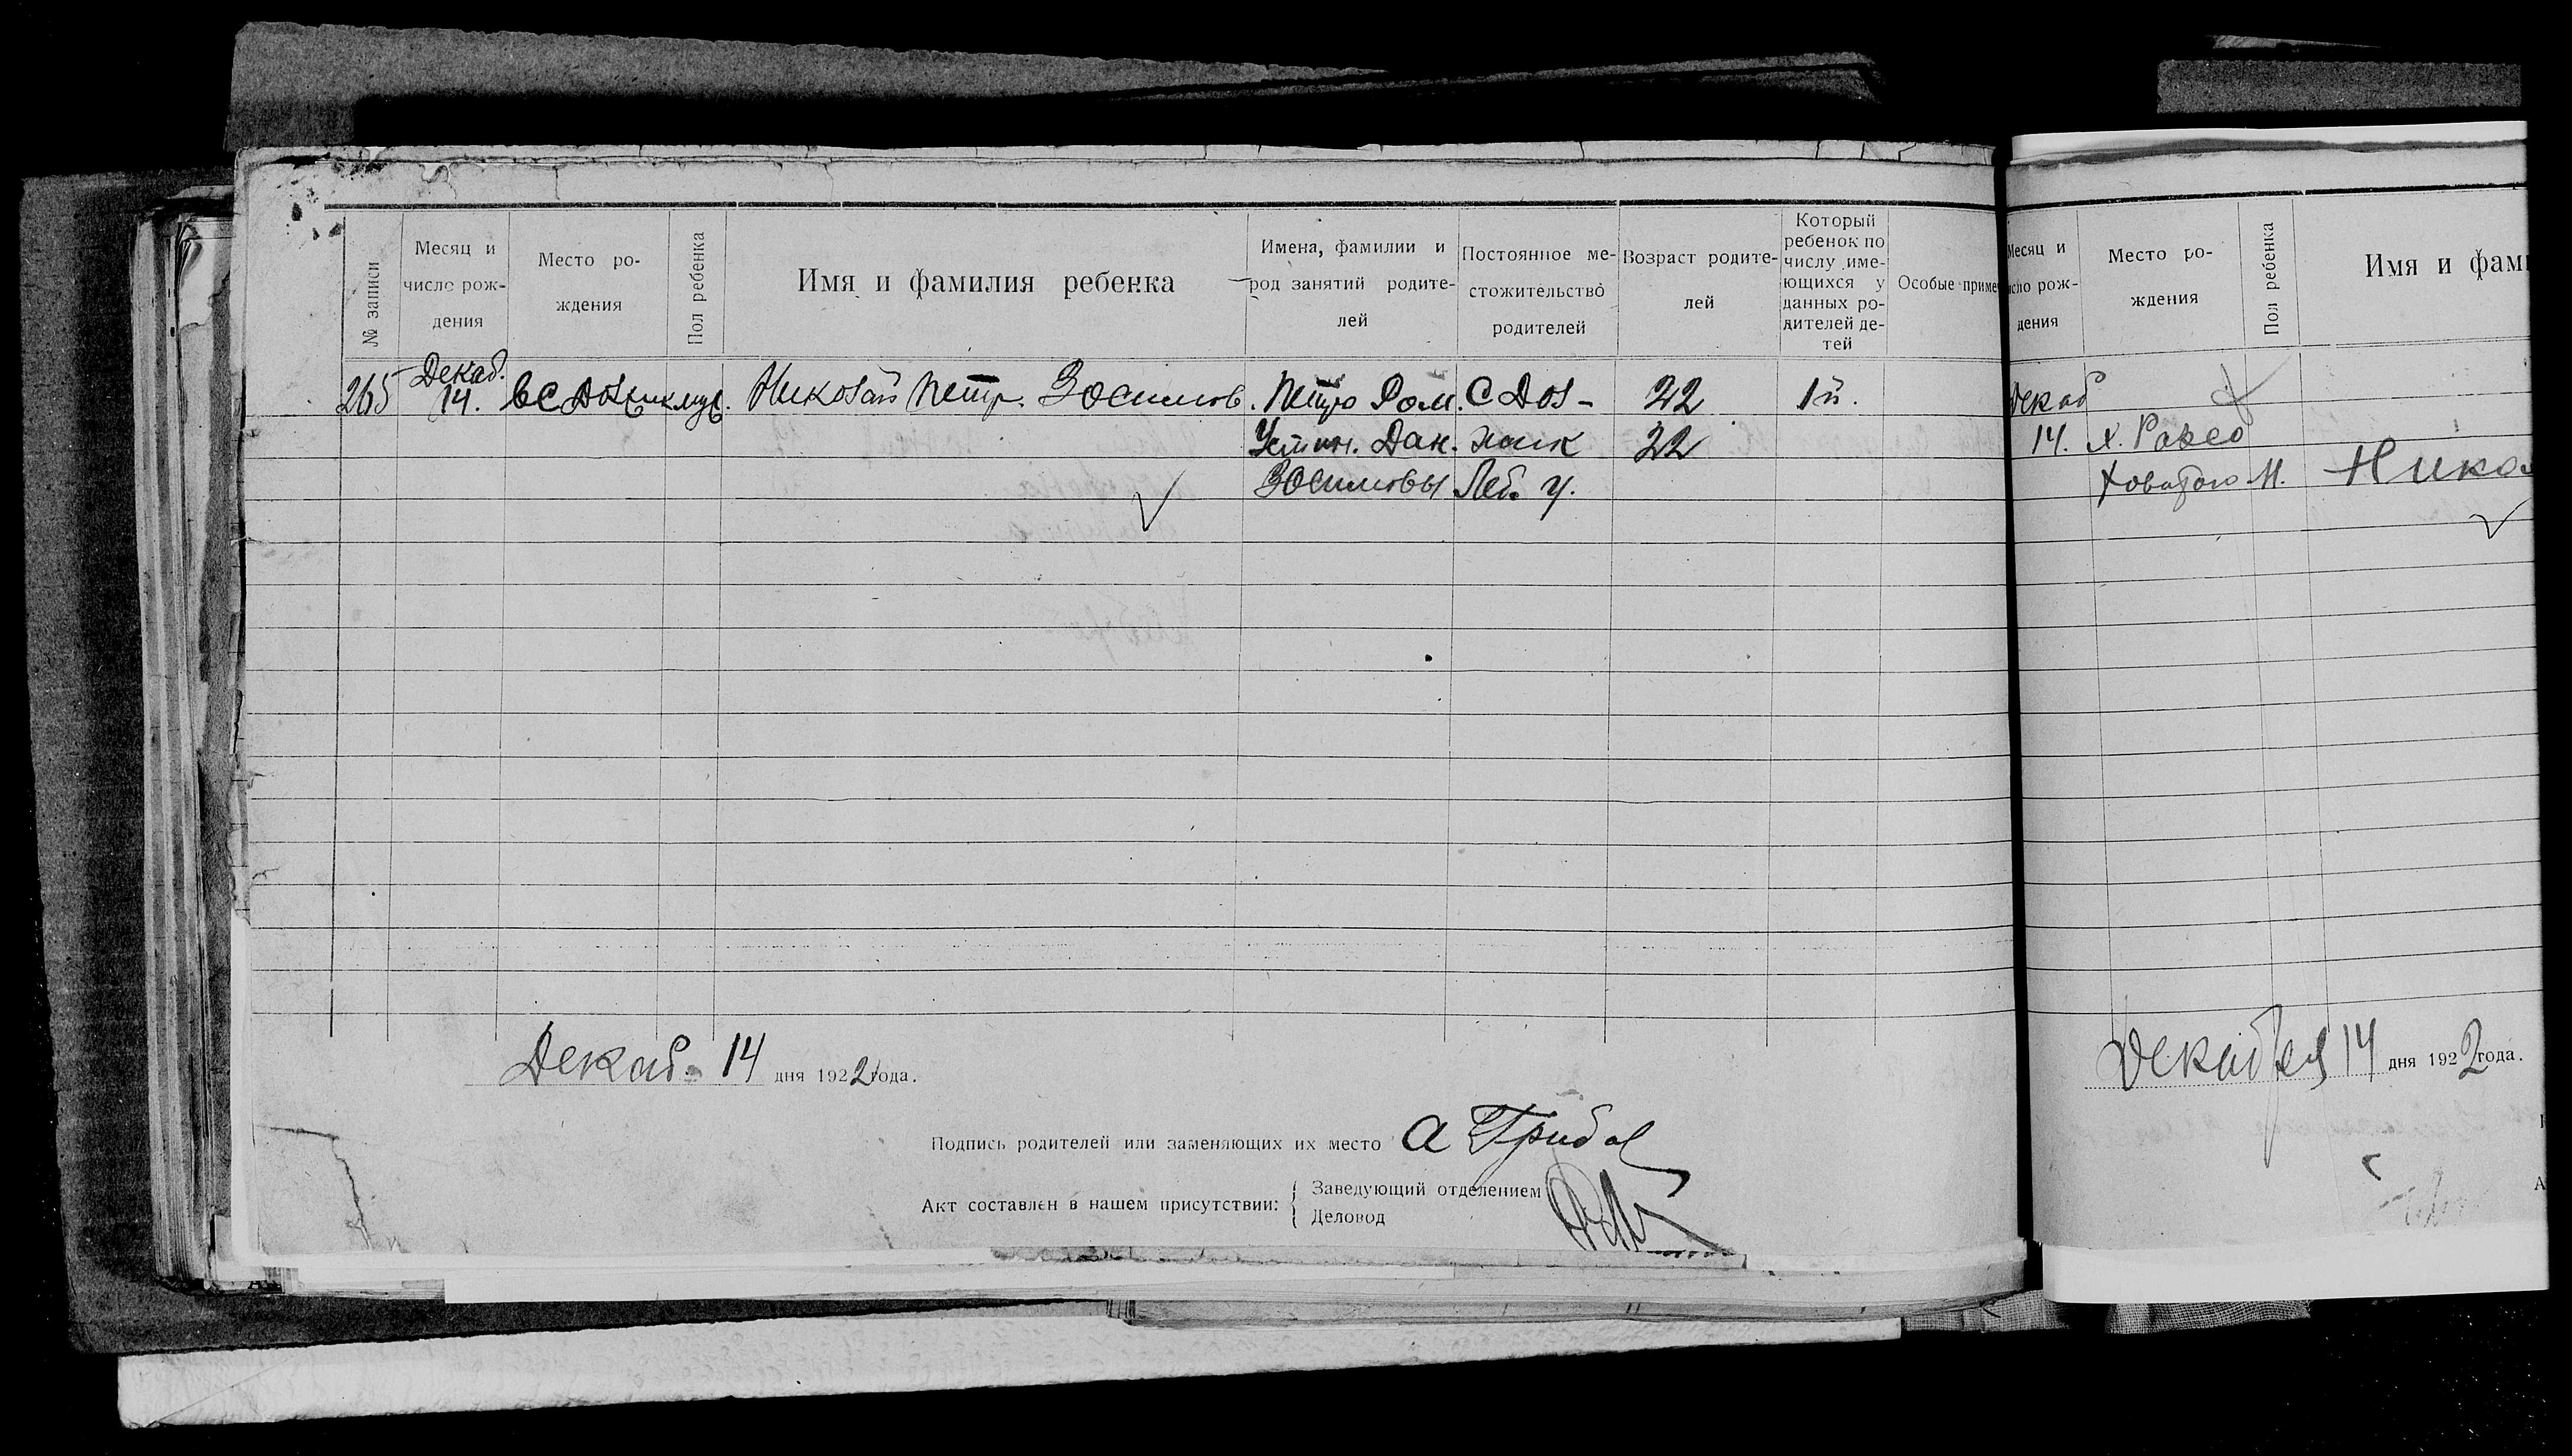 № записи
Месяц и число рож-дения
Место ро-ждения
Пол ребенка
Имя и фамилия ребенка
Имена, фамилии и род занятий родите-лей
Постоянное ме-стожительство родителей
Возраст родите-лей
Который ребенок по числу име-ющихся у данных ро-дителей де-тей
Особые приме
265 Декаб. 14. в С муж. Николай Петр. Зосимов. Петро Ром. С Дол- 22 1й.
Устин. Дан. жик 22
Зосимовы Леб. у.
Декаб. 14 дня 1922 года.
Подпись родителей или заменяющих их место А Грибов
Акт составлен в нашем присутствии: Заведующий отделением
Деловод
Месяц и число рож-дения
Место ро-ждения
Пол ребенка
Имя и фам
Декаб
14. х.
М. Никол
Декабря 14 дня 1922 года.